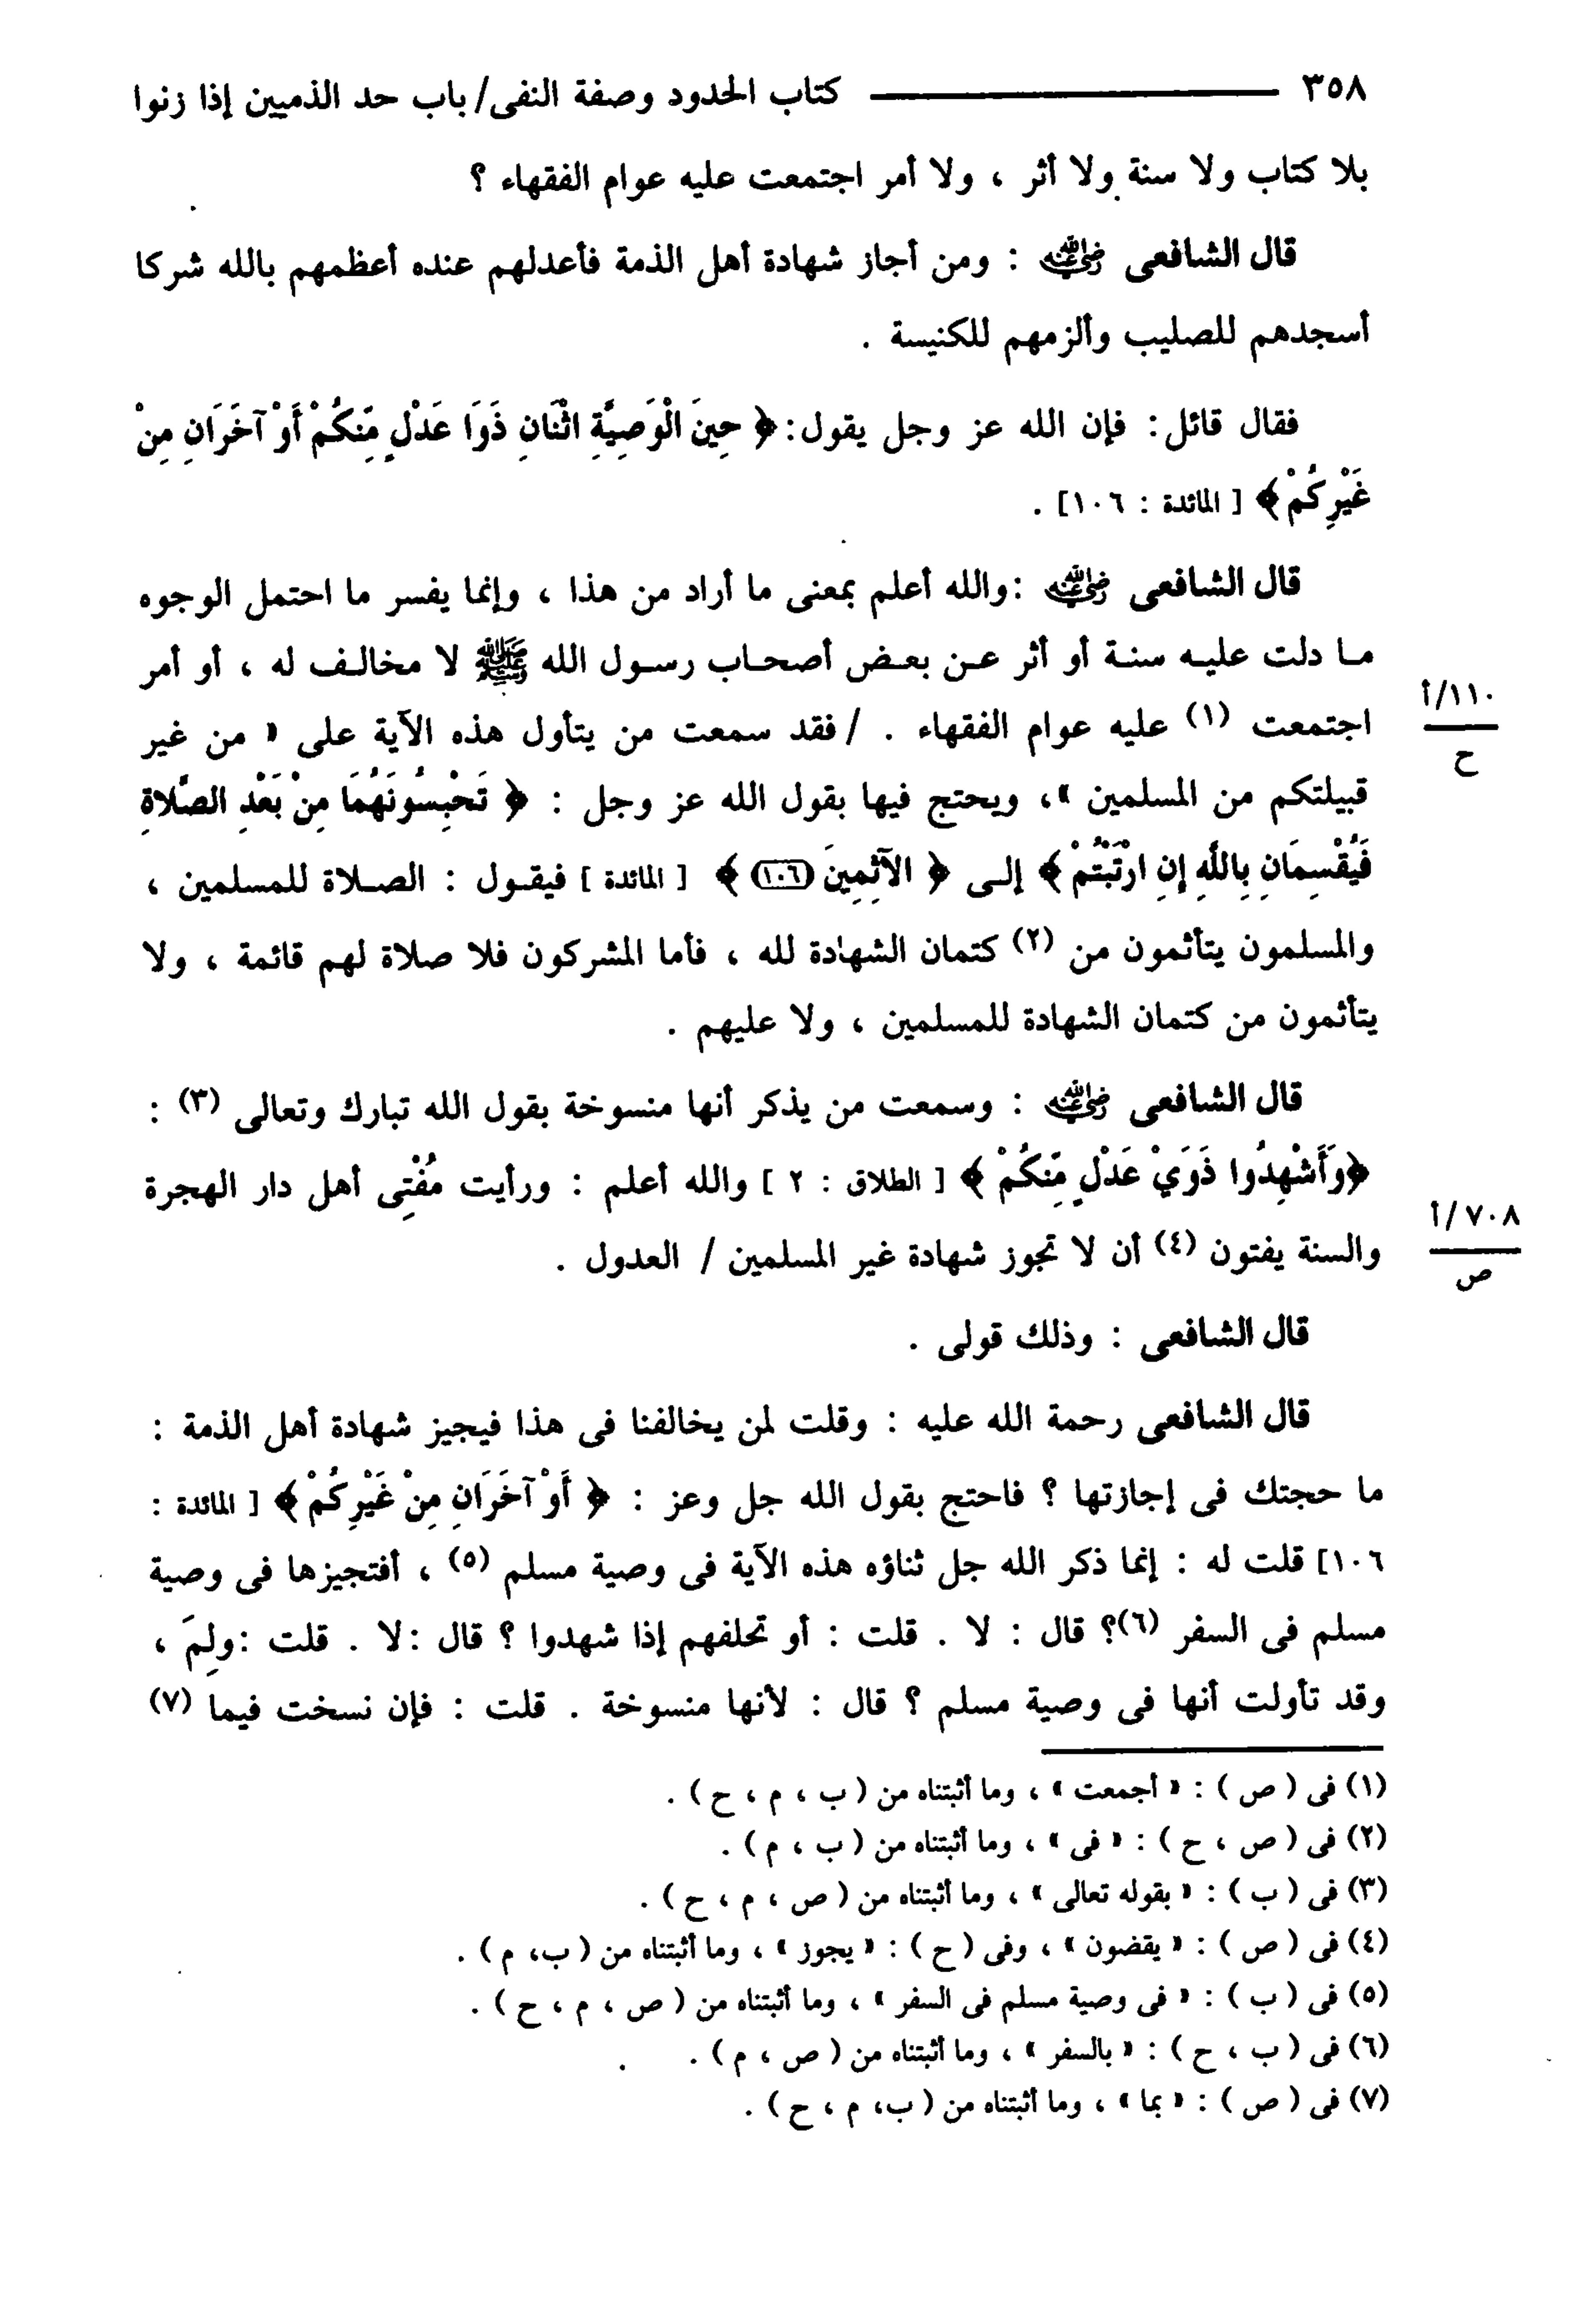 ٣٥٨ ـــــ كتاب الحدود وصفة النفى/ باب حد الذميين إذا زنوا
بلا كتاب ولا سنة ولا أثر ، ولا أمر اجتمعت عليه عوام الفقهاء ؟
قال الشافعى رضي الله عنه : ومن أجاز شهادة أهل الذمة فأعدلهم عنده أعظمهم بالله شركا
أسجدهم للصليب وألزمهم للكنيسة .
فقال قائل: فإن الله عز وجل يقول: ﴿ حِينَ الْوَصِيَّةِ اثْنَانِ ذَوَا عَدْلٍ مِّنكُمْ أَوْ آخَرَانِ مِنْ
غَيْرِكُمْ ﴾ [ المائدة : ١٠٦] .
قال الشافعى رضي الله عنه :والله أعلم بمعنى ما أراد من هذا ، وإنما يفسر ما احتمل الوجوه
ما دلت عليه سنة أو أثر عن بعض أصحاب رسول الله ﷺ لا مخالف له ، أو أمر
١١٠/أ
ح
اجتمعت (١) عليه عوام الفقهاء . / فقد سمعت من يتأول هذه الآية على « من غير
قبيلتكم من المسلمين »، ويحتج فيها بقول الله عز وجل : ﴿ تَحْبِسُونَهُمَا مِنْ بَعْدِ الصَّلاةِ
فَيُقْسِمَانِ بِاللَّهِ إِنِ ارْتَبْتُمْ ﴾ إلى ﴿ الآثِمِينَ (١٠٦) ﴾ [ المائدة ] فيقول : الصلاة للمسلمين ،
والمسلمون يتأثمون من (٢) كتمان الشهادة لله ، فأما المشركون فلا صلاة لهم قائمة ، ولا
يتأثمون من كتمان الشهادة للمسلمين ، ولا عليهم .
قال الشافعى رضي الله عنه : وسمعت من يذكر أنها منسوخة بقول الله تبارك وتعالى (٣) :
﴿وَأَشْهِدُوا ذَوَيْ عَدْلٍ مِّنكُمْ ﴾ [ الطلاق : ٢ ] والله أعلم : ورأيت مُفْتِى أهل دار الهجرة
٧٠٨/أ
ص
والسنة يفتون (٤) أن لا تجوز شهادة غير المسلمين / العدول .
قال الشافعى : وذلك قولى .
قال الشافعى رحمة الله عليه : وقلت لمن يخالفنا فى هذا فيجيز شهادة أهل الذمة :
ما حجتك فى إجازتها ؟ فاحتج بقول الله جل وعز : ﴿ أَوْ آخَرَانِ مِنْ غَيْرِكُمْ ﴾ [ المائدة :
١٠٦] قلت له : إنما ذكر الله جل ثناؤه هذه الآية فى وصية مسلم (٥) ، أفتجيزها فى وصية
مسلم فى السفر (٦)؟ قال : لا . قلت : أو تحلفهم إذا شهدوا ؟ قال :لا . قلت :ولِمَ ،
وقد تأولت أنها فى وصية مسلم ؟ قال : لأنها منسوخة . قلت : فإن نسخت فيما (٧)
(١) فى ( ص ) : « أجمعت » ، وما أثبتناه من ( ب ، م ، ح ) .
(٢) فى ( ص ، ح ) : « فى » ، وما أثبتناه من ( ب ، م ) .
(٣) فى ( ب ) : « بقوله تعالى » ، وما أثبتناه من ( ص ، م ، ح ) .
(٤) فى ( ص ) : « يقضون » ، وفى ( ح ) : « يجوز » ، وما أثبتناه من ( ب، م ) .
(٥) فى ( ب ) : « فى وصية مسلم فى السفر » ، وما أثبتناه من ( ص ، م ، ح ) .
(٦) فى ( ب ، ح ) : « بالسفر » ، وما أثبتناه من ( ص ، م ) .
(٧) فى ( ص ) : « بما » ، وما أثبتناه من ( ب، م ، ح ) .